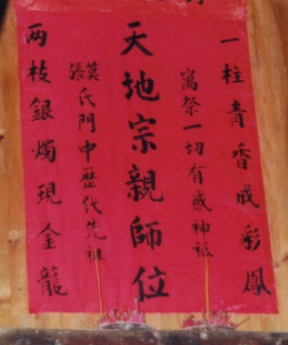 一柱青香成彩鳳
寓祭一切有感神祇
天地宗親師位
張莫氏門中歷代先祖
两枝銀燭現金龍